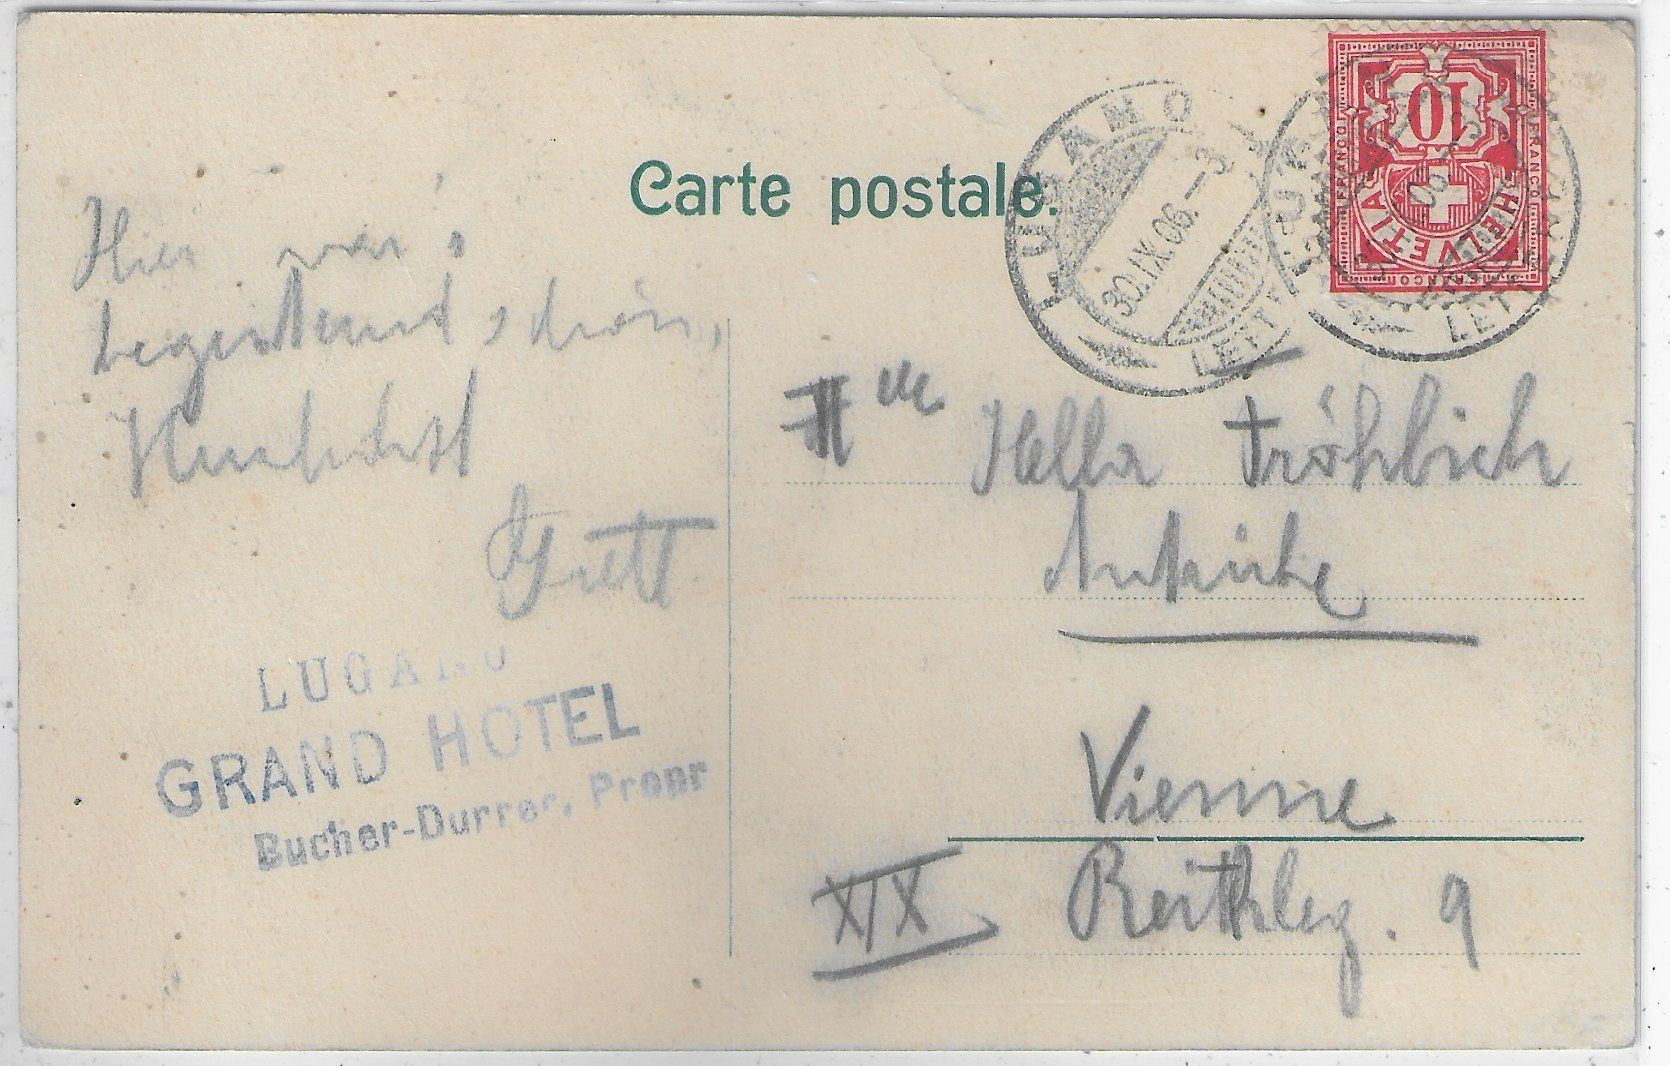 Carte postale.
LUGANO
30.IX.06.–3
LETT
10
FRANCO
FRANCO
HELVETIA
Hier war's
begeisternd schön,
Mlle Hella Fröhlich
Vienne
XIX Reithleg. 9
LUGANO
GRAND HOTEL
Bucher-Durrer, Propr